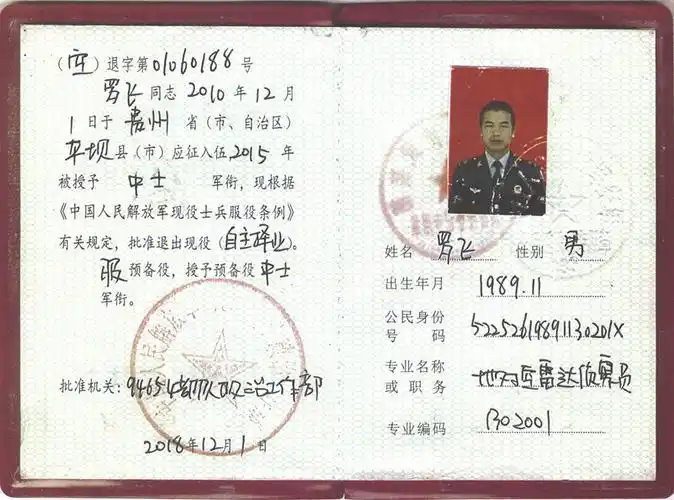 （空）退字第01060188号
罗飞同志2010年12月
1日于贵州省（市、自治区）
平坝县（市）应征入伍2015年
被授予中士军衔，现根据
《中国人民解放军现役士兵服役条例》
有关规定，批准退出现役（自主择业）。
服预备役，授予预备役中士
军衔。
批准机关：94654部队政治工作部
2018年12月1日
姓名 罗飞 性别 男
出生年月 1989.11
公民身份
号码 52252619891130201X
专业名称
或职务 地对空雷达侦察员
专业编码 B02001